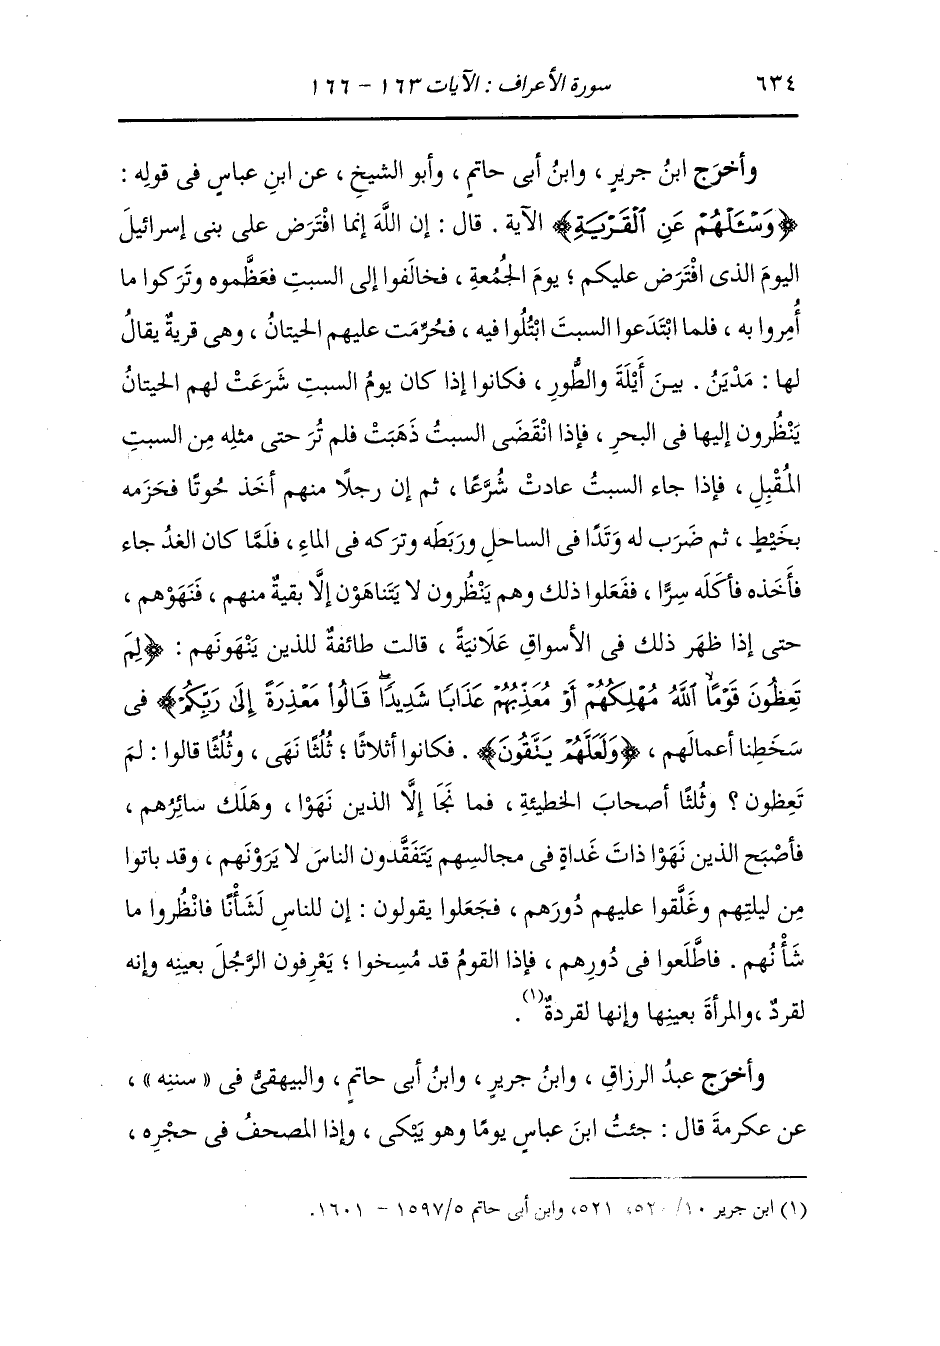 ٦٣٤ سورة الأعراف : الآيات ١٦٣ - ١٦٦
وأخرَج ابنُ جريرٍ ، وابنُ أبى حاتمٍ ، وأبو الشيخِ ، عن ابنِ عباسٍ فى قولِه :
﴿وَسْئَلْهُمْ عَنِ ٱلْقَرْيَةِ﴾ الآية . قال : إن اللَّهَ إنما افْتَرَض على بنى إسرائيلَ
اليومَ الذى افْتَرَض عليكم ؛ يومَ الجُمُعةِ ، فخالَفوا إلى السبتِ فعَظَّموه وتَرَكوا ما
أُمِروا به ، فلما ابْتَدَعوا السبتَ ابْتُلُوا فيه ، فحُرِّمَت عليهم الحيتانُ ، وهى قريةٌ يقالُ
لها : مَدْيَنُ . بينَ أَيْلَةَ والطُّورِ ، فكانوا إذا كان يومُ السبتِ شَرَعَتْ لهم الحيتانُ
يَنْظُرون إليها فى البحرِ ، فإذا انْقَضَى السبتُ ذَهَبَتْ فلم تُرَ حتى مثلِه مِن السبتِ
المُقْبِلِ ، فإذا جاء السبتُ عادتْ شُرَّعًا ، ثم إن رجلًا منهم أخَذ حُوتًا فحَزَمه
بخَيْطٍ ، ثم ضَرَب له وَتَدًا فى الساحلِ ورَبَطَه وترَكه فى الماءِ ، فلَمَّا كان الغدُ جاء
فأَخَذه فأكَلَه سِرًّا ، ففَعَلوا ذلك وهم يَنْظُرون لا يَتَناهَوْن إلَّا بقيةٌ منهم ، فَنَهَوْهم ،
حتى إذا ظهَر ذلك فى الأسواقِ عَلَانيَةً ، قالت طائفةٌ للذين يَنْهَونَهم : ﴿لِمَ
تَعِظُونَ قَوْمًا ٱللَّهُ مُهْلِكُهُمْ أَوْ مُعَذِّبُهُمْ عَذَابًا شَدِيدًا قَالُوا۟ مَعْذِرَةً إِلَىٰ رَبِّكُمْ﴾ فى
سَخَطِنا أعمالَهم ، ﴿وَلَعَلَّهُمْ يَتَّقُونَ﴾ . فكانوا أثلاثًا ؛ ثُلُثًا نَهَى ، وثُلُثًا قالوا : لمَ
تَعِظون ؟ وثُلثًا أصحابَ الخطيئةِ ، فما نَجَا إلَّا الذين نَهَوْا ، وهَلَك سائِرُهم ،
فأصْبَح الذين نَهَوْا ذاتَ غَداةٍ فى مجالسِهم يَتَفَقَّدون الناسَ لا يَرَوْنَهم ، وقد باتوا
مِن ليلتِهم وغَلَّقوا عليهم دُورَهم ، فجَعَلوا يقولون : إن للناسِ لَشَأْنًا فانْظُروا ما
شَأْنُهم . فاطَّلَعوا فى دُورِهم ، فإذا القومُ قد مُسِخوا ؛ يَعْرِفون الرَّجُلَ بعينِه وإنه
لقردٌ ،والمرأةَ بعينِها وإنها لقردةٌ(١) .
وأخرَج عبدُ الرزاقِ ، وابنُ جريرٍ ، وابنُ أبى حاتمٍ ، والبيهقىُّ فى « سننِه » ،
عن عكرمةَ قال : جئتُ ابنَ عباسٍ يومًا وهو يَبْكى ، وإذا المصحفُ فى حجْرِه ،
(١) ابن جرير ١٠/ ٥٢٠، ٥٢١، وابن أبى حاتم ١٥٩٧/٥ - ١٦٠١.